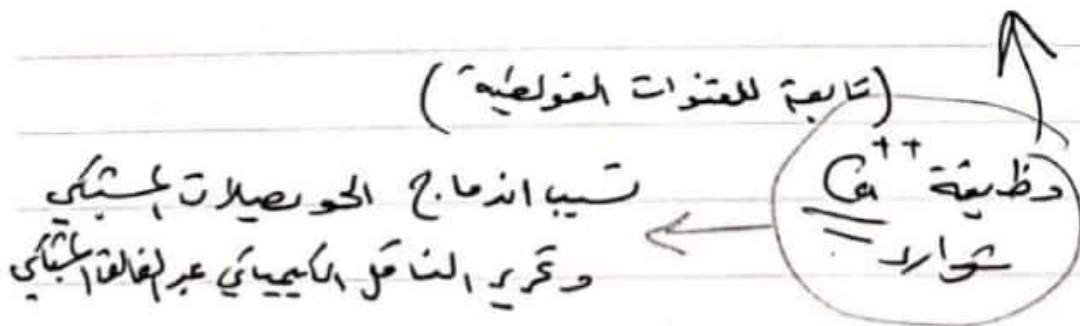 (تابعة للقنوات الفولطية)
وظيفة Ca++
شوارد
تسبب اندماج الحويصلات المشبكي
وتحرير الناقل الكيميائي عبر الفالق المشبكي